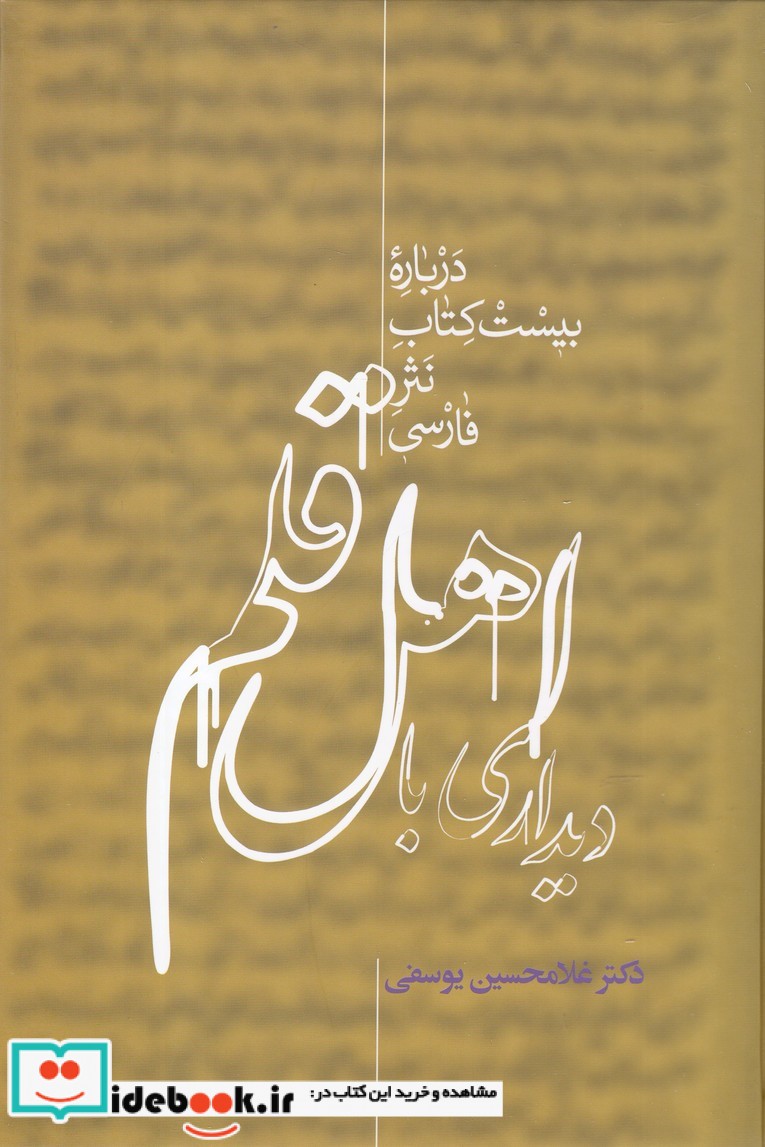 دَرْبارِهٔ
بیسْتْ کِتابِ
نَثْرِ
فارْسی
دیداری با
اهل قلم
دکتر غلامحسین یوسفی
مشاهده و خرید این کتاب در:
idebook.ir